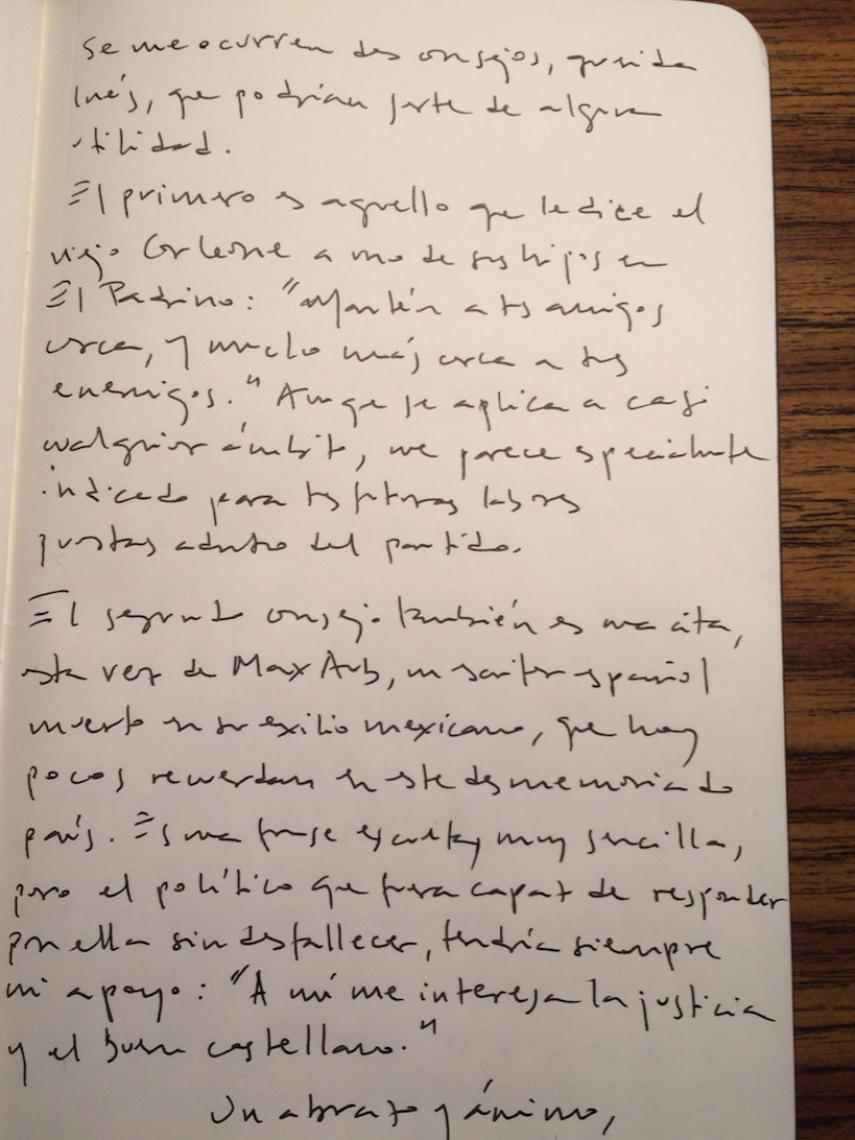 Se me ocurren dos consejos, querida
Inés, que podrían serte de alguna
utilidad.
El primero es aquello que le dice el
viejo Corleone a uno de sus hijos en
El Padrino: "Mantén a tus amigos
cerca, y mucho más cerca a tus
enemigos." Aunque se aplica a casi
cualquier ámbito, me parece especialmente
indicado para tus futuras labores
justas adentro del partido.
El segundo consejo también es una cita,
esta vez de Max Aub, un escritor español
muerto en su exilio mexicano, que hoy
pocos recuerdan en este desmemoriado
país. Es una frase escueta y muy sencilla,
pero el político que fuera capaz de responder
por ella sin desfallecer, tendría siempre
mi apoyo: "A mí me interesa la justicia
y el buen castellano."
Un abrazo y ánimo,